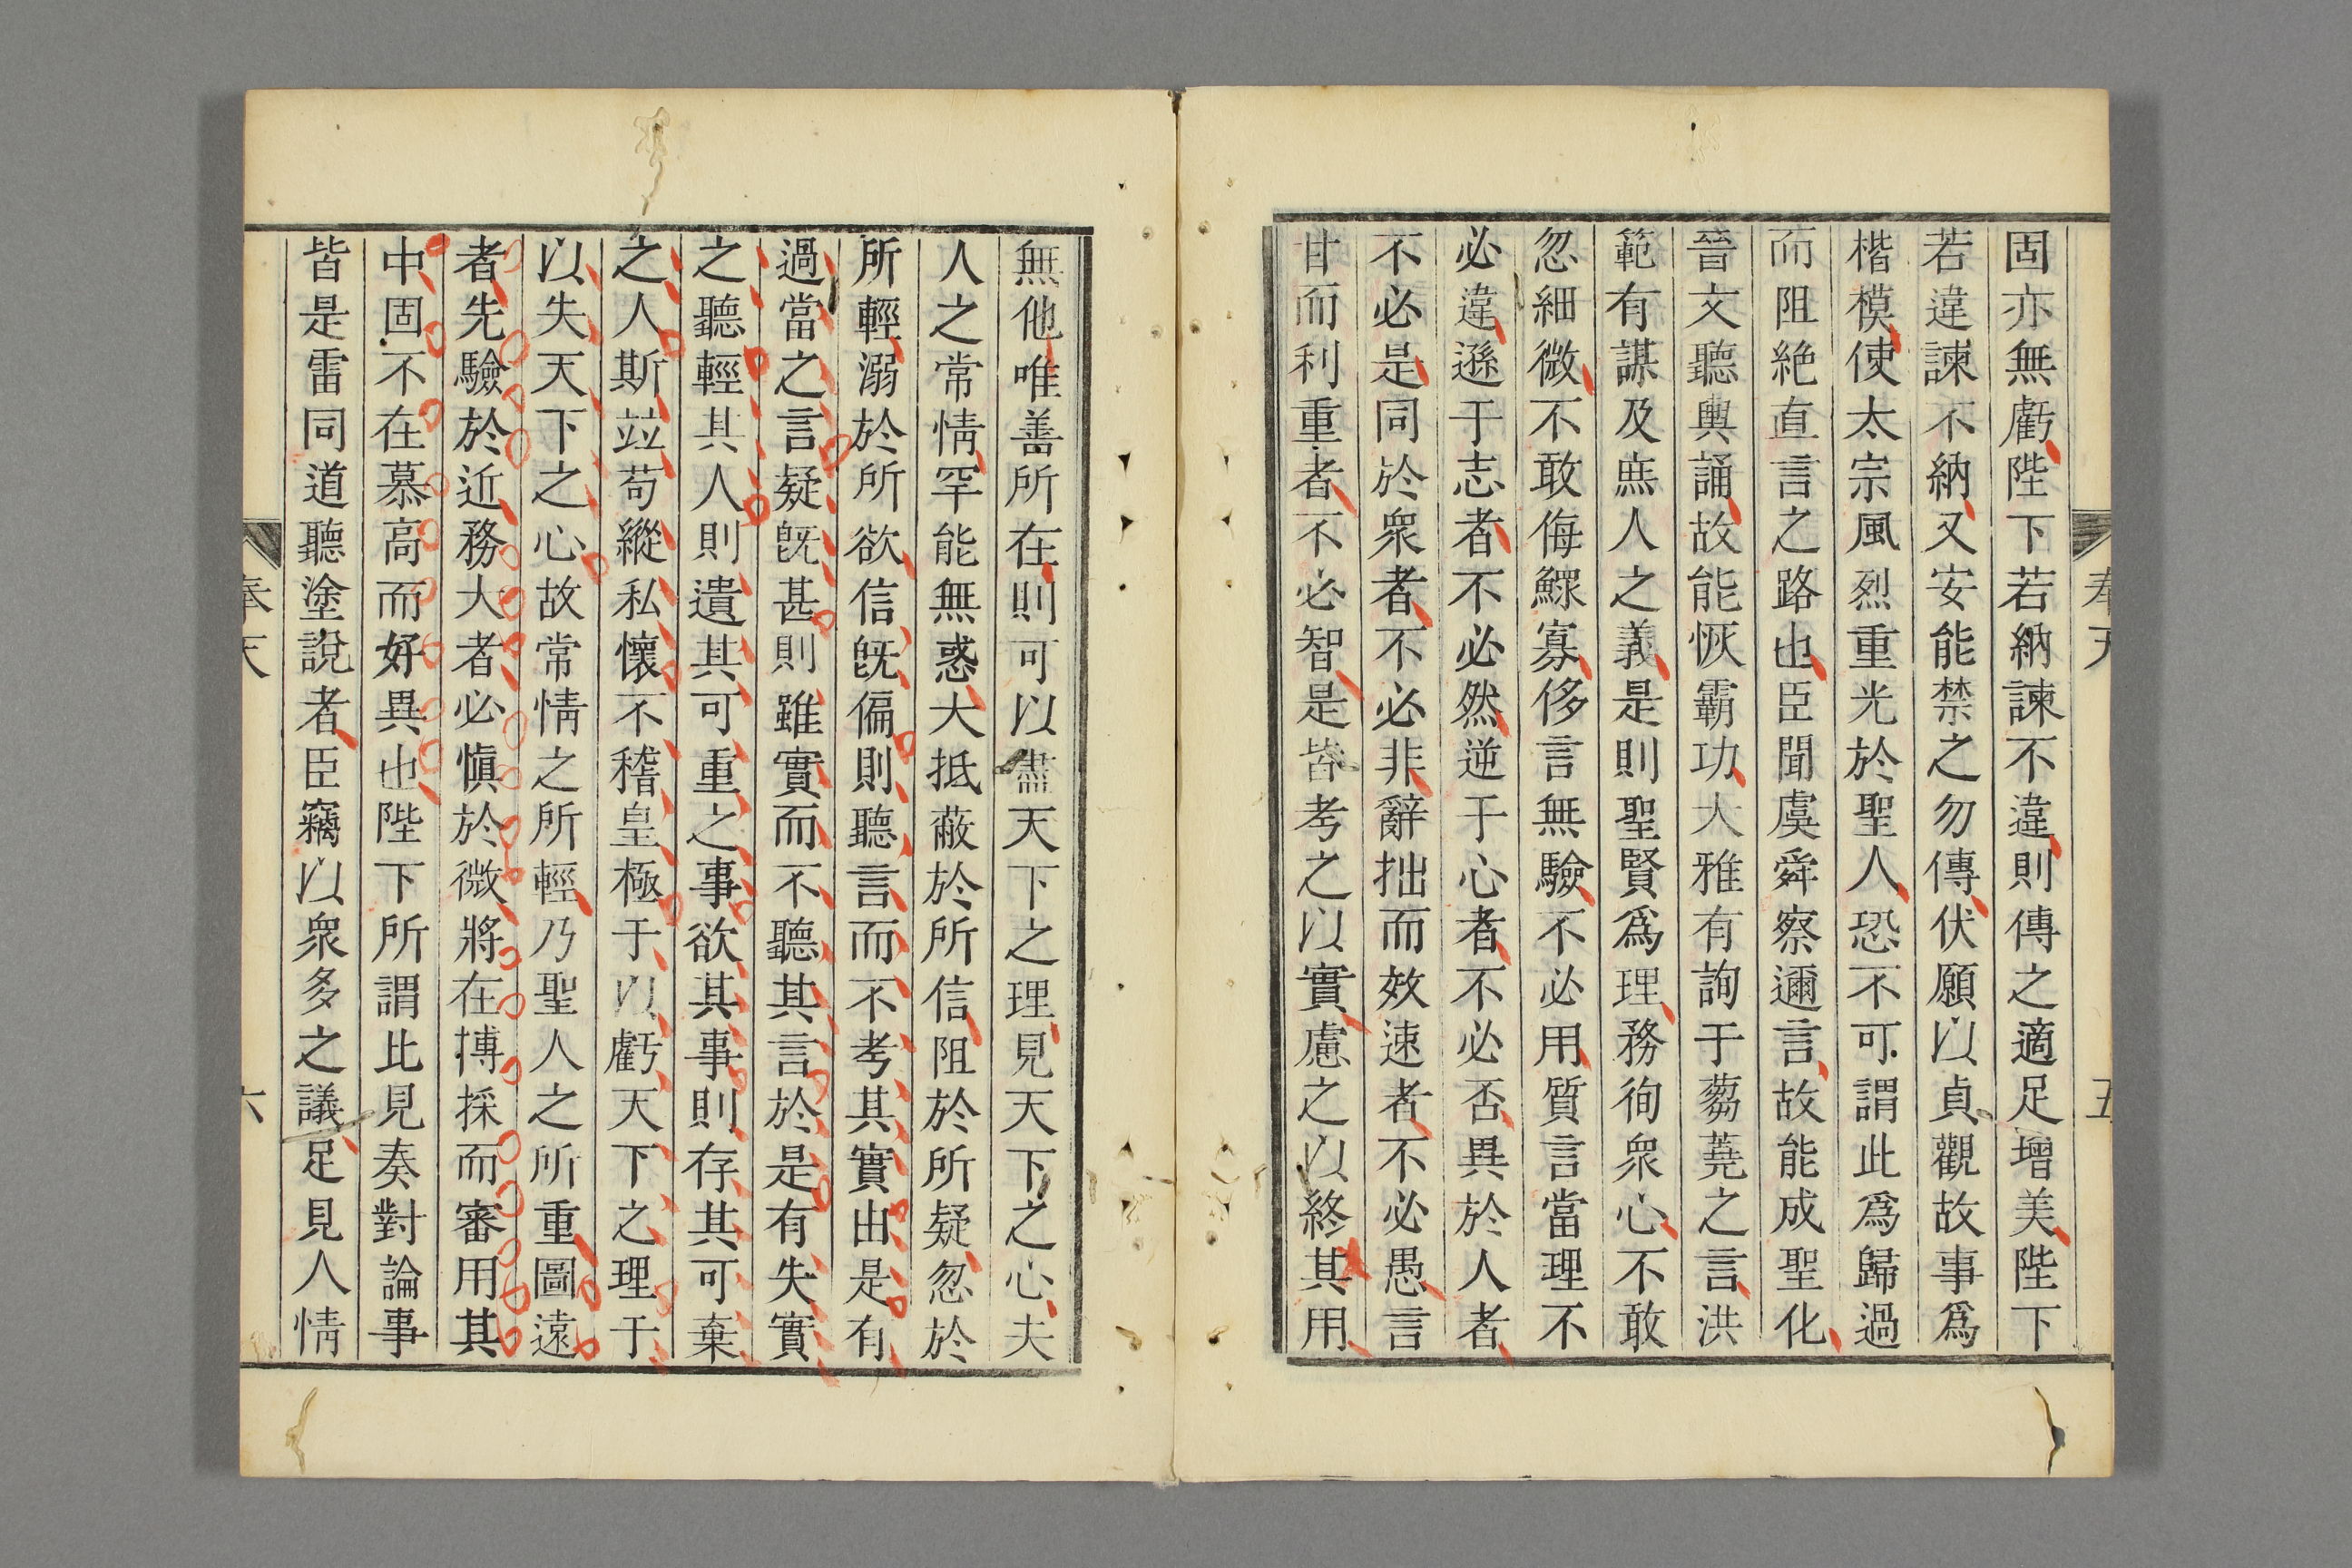 固亦無虧陛下若納諫不違則傳之適足增美陛下
若違諫不納又安能禁之勿傳伏願以貞觀故事爲
楷模使太宗風烈重光於聖人恐不可謂此爲歸過
而阻絶直言之路也臣聞虞舜察邇言故能成聖化
晉文聽輿誦故能恢霸功大雅有詢于蒭蕘之言洪
範有謀及庶人之義是則聖賢爲理務徇衆心不敢
忽細微不敢侮鰥寡侈言無驗不必用質言當理不
必違遜于志者不必然逆于心者不必否異於人者
不必是同於衆者不必非辭拙而效速者不必愚言
甘而利重者不必智是皆考之以實慮之以終其用
無他唯善所在則可以盡天下之理見天下之心夫
人之常情罕能無惑大抵蔽於所信阻於所疑忽於
所輕溺於所欲信旣偏則聽言而不考其實出是有
過當之言疑旣甚則雖實而不聽其言於是有失實
之聽輕其人則遺其可重之事欲其事則存其可棄
之人斯竝苟縱私懷不稽皇極于以虧天下之理于
以失天下之心故常情之所輕乃聖人之所重圖遠
者先驗於近務大者必愼於微將在摶採而審用其
中固不在慕高而好異也陛下所謂比見奏對論事
皆是雷同道聽塗說者臣竊以衆多之議足見人情
奉天
六